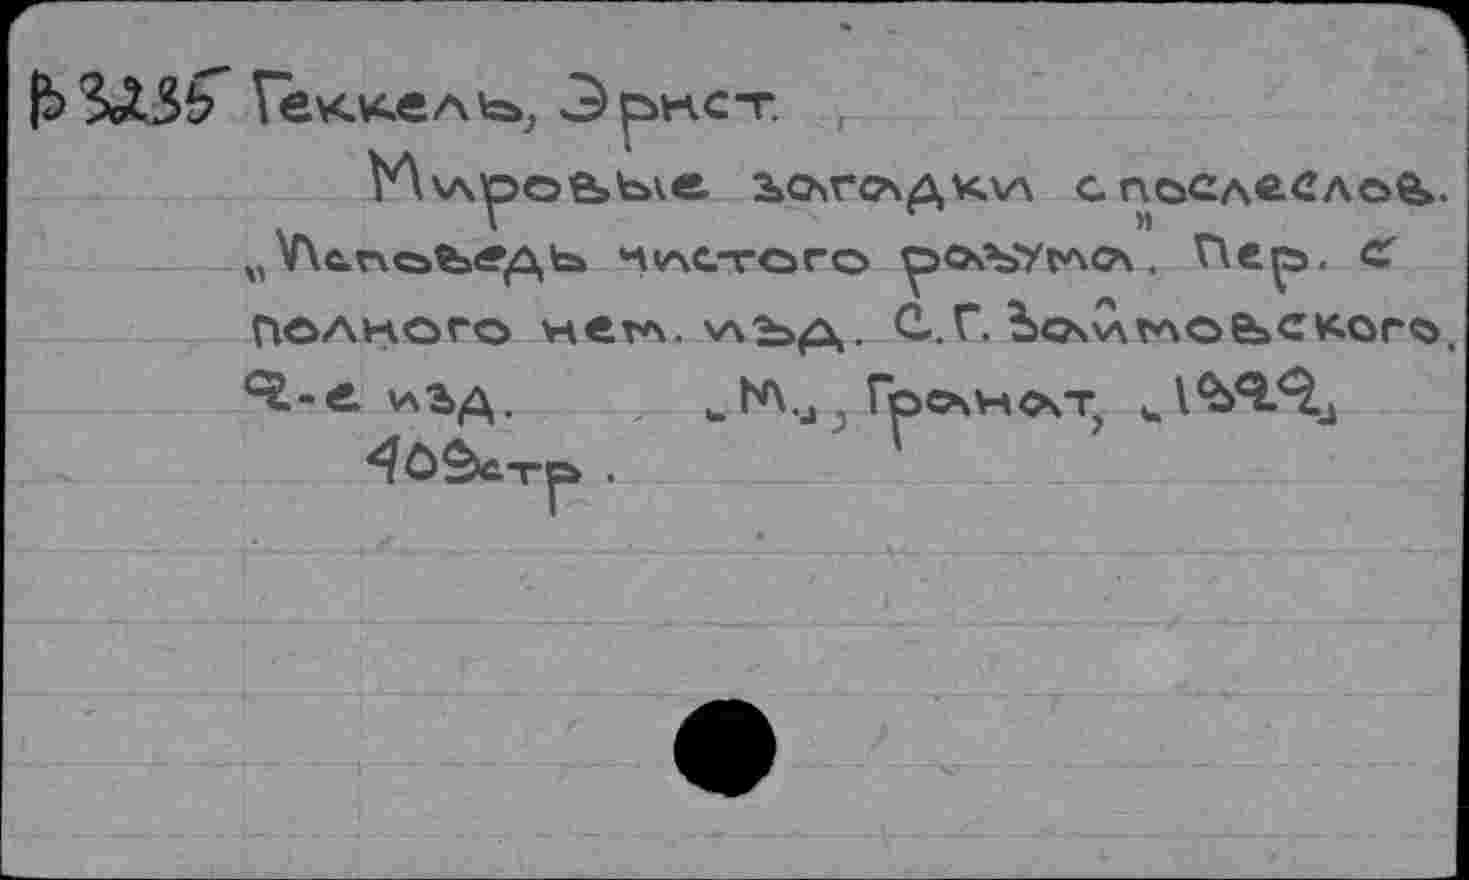 Геккель, Эрнст.
Мировые загадки с послеслов.
„Исповедь чистого разума”. Пер. с
полного нем. изд. С.Г. Займовского.
2-е изд. [М.], Гранат, [1922]
408стр.